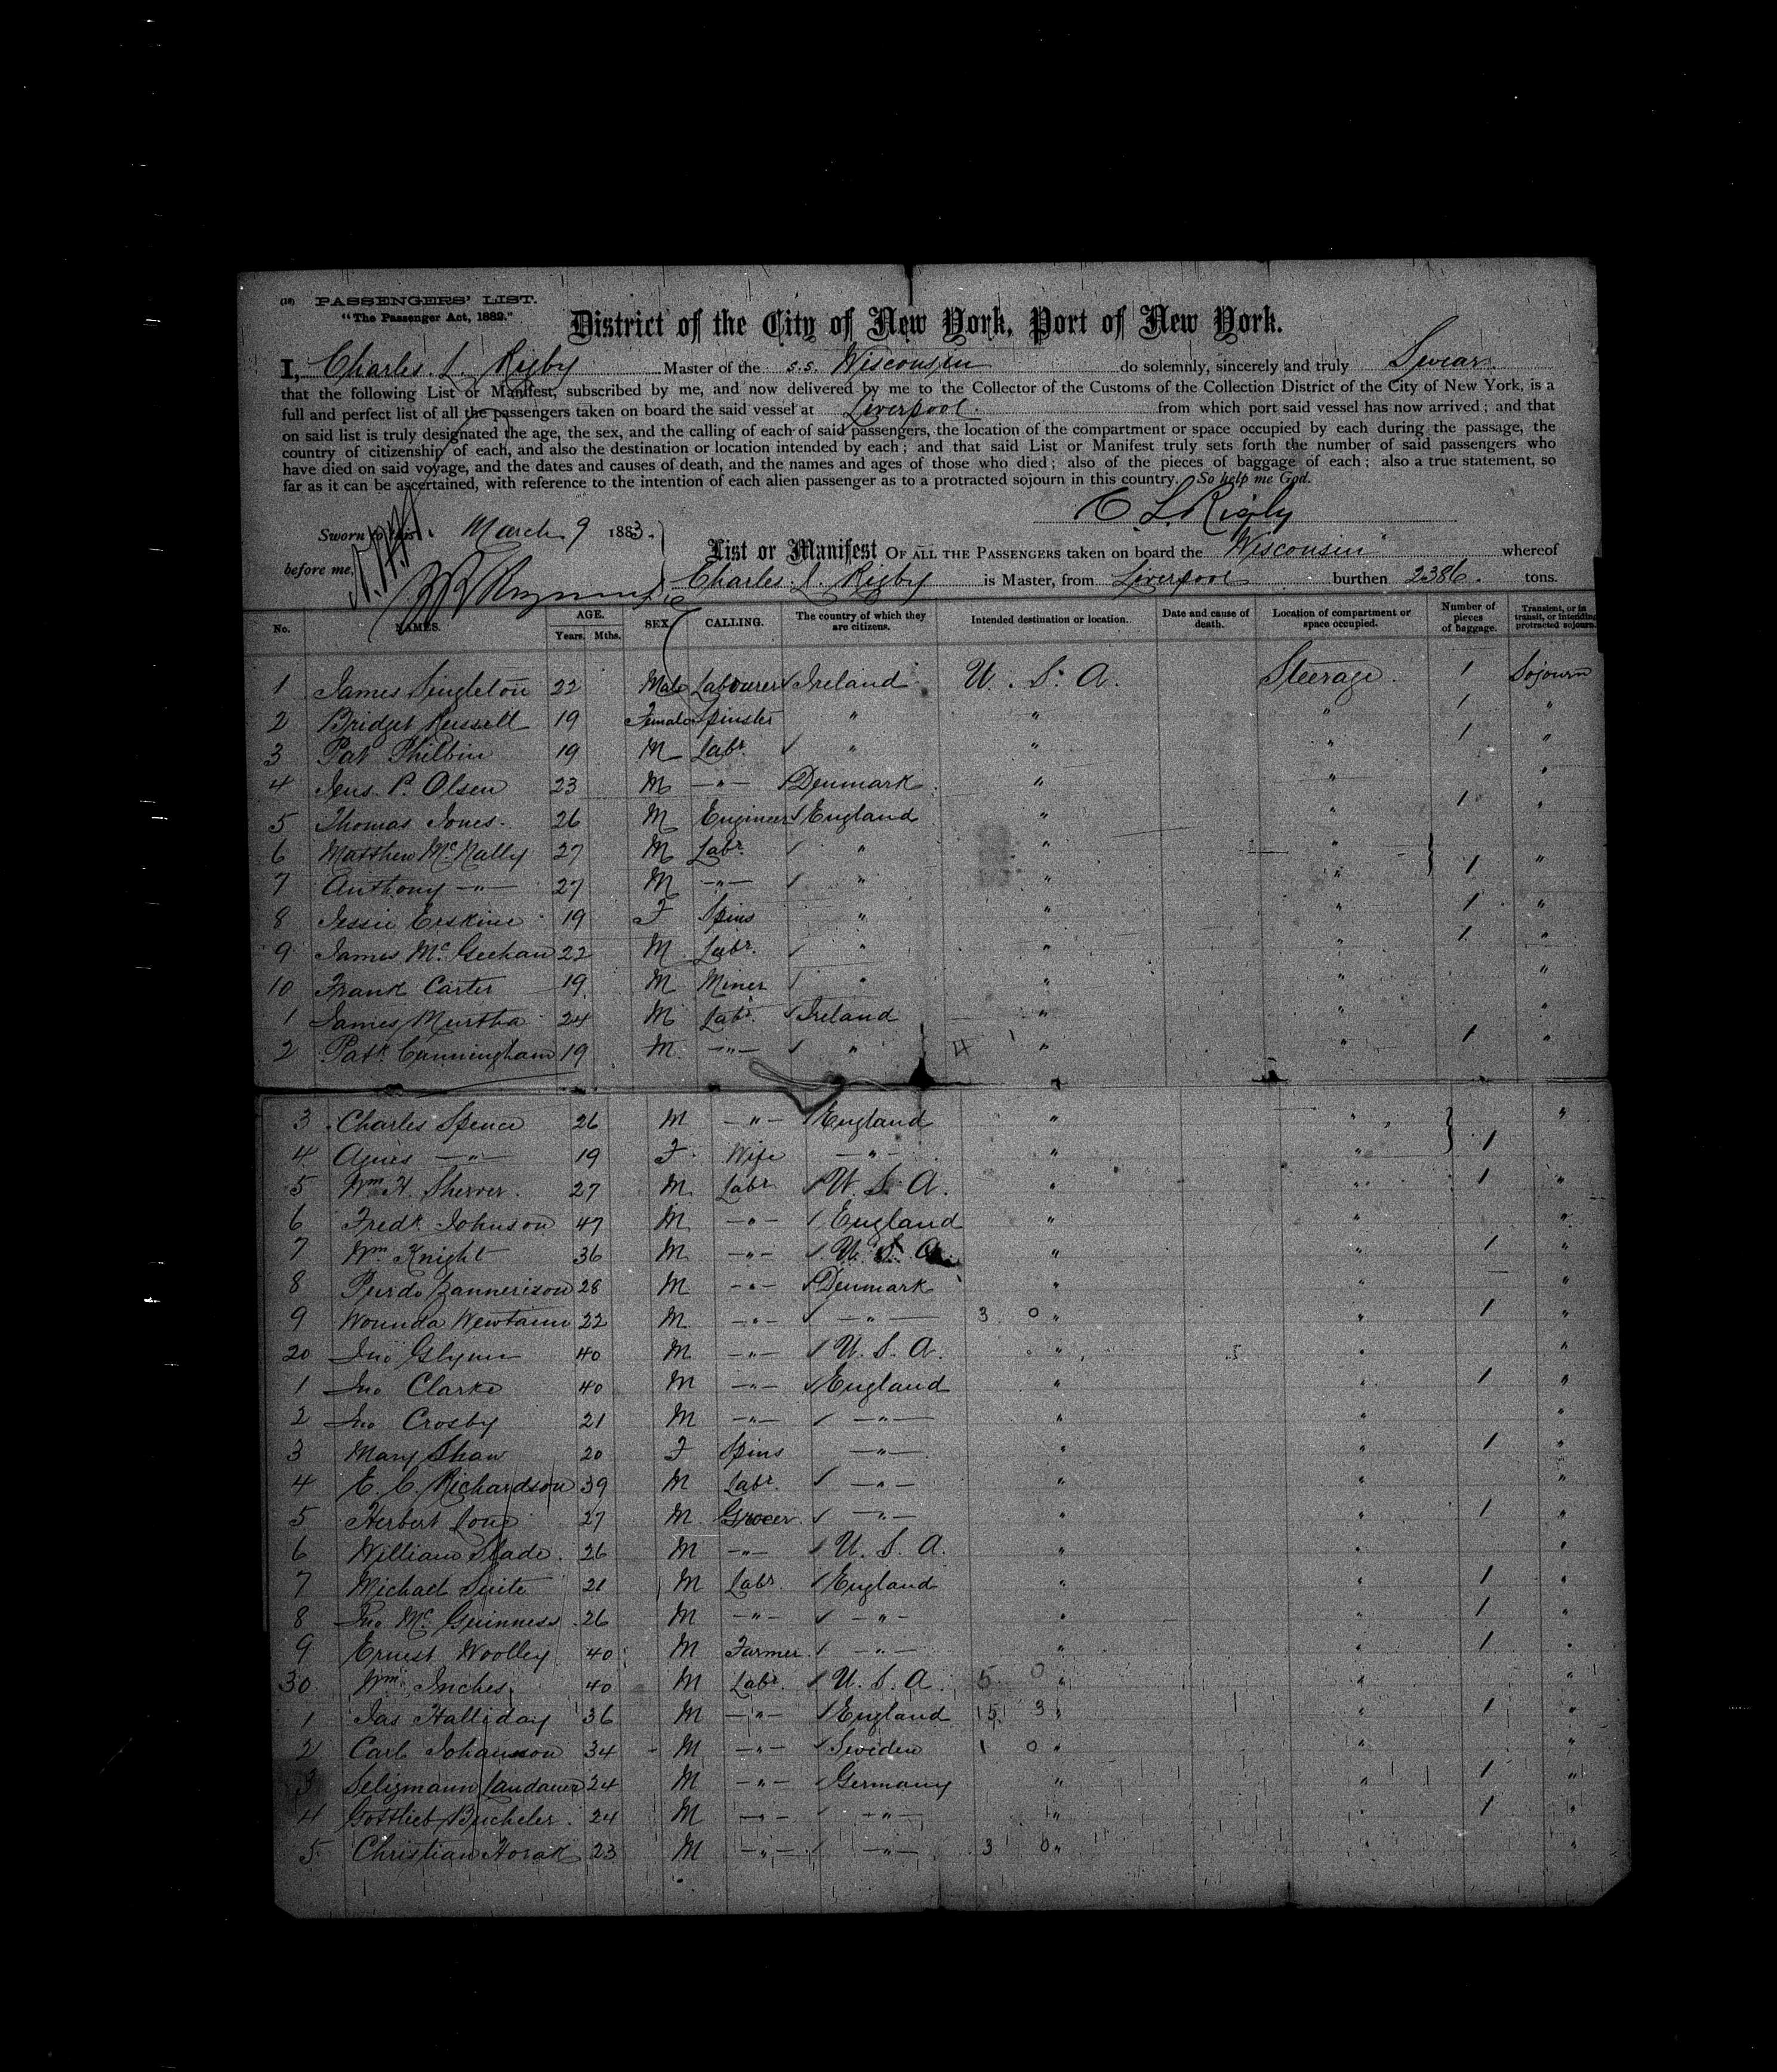 (18) PASSENGERS' LIST.
"The Passenger Act, 1882."
District of the City of New York, Port of New York.
I, Charles L. Rigby Master of the s.s. Wisconsin do solemnly, sincerely and truly Swear
that the following List or Manifest, subscribed by me, and now delivered by me to the Collector of the Customs of the Collection District of the City of New York, is a
full and perfect list of all the passengers taken on board the said vessel at Liverpool from which port said vessel has now arrived; and that
on said list is truly designated the age, the sex, and the calling of each of said passengers, the location of the compartment or space occupied by each during the passage, the
country of citizenship of each, and also the destination or location intended by each; and that said List or Manifest truly sets forth the number of said passengers who
have died on said voyage, and the dates and causes of death, and the names and ages of those who died; also of the pieces of baggage of each; also a true statement, so
far as it can be ascertained, with reference to the intention of each alien passenger as to a protracted sojourn in this country. So help me God.
C. L. Rigby
Sworn to this March 9 1883.
before me,
List or Manifest OF ALL THE PASSENGERS taken on board the Wisconsin whereof
Charles L. Rigby is Master, from Liverpool burthen 2386. tons.
No. NAMES. AGE. Years. Mths. SEX. CALLING. The country of which they are citizens. Intended destination or location. Date and cause of death. Location of compartment or space occupied. Number of pieces of baggage. Transient, or in transit, or intending protracted sojourn.
1 James Singleton 22 Male Labourer Ireland U. S. A. Steerage 1 Sojourn
2 Bridget Russell 19 Female Spinster " " " 1 "
3 Pat Philbin 19 M Labr " " " 1 "
4 Jens P. Olsen 23 M —"— Denmark " " "
5 Thomas Jones 26 M Engineer England " " 1 "
6 Matthew McNally 27 M Labr. " " "
7 Anthony —"— 27 M —"— " " " 1 "
8 Jessie Erskine 19 F Spins " " " 1 "
9 James McGeehan 22 M Labr. " " " 1 "
10 Frank Carter 19 M Miner " " " "
1 James Murtha 24 M Labr. Ireland " " "
2 Patk Cunningham 19 M —"— " 4 " " 1 "
3 Charles Spence 26 M —"— England " " "
4 Agnes —"— 19 F Wife —"— " " 1
5 Wm H. Sherrer. 27 M Labr U. S. A. " " 1 "
6 Fredk Johnson 47 M —"— England " " "
7 Wm Knight 36 M —"— U. S. A. " " 1 "
8 28 M —"— Denmark " " — "
9 22 M —"— —"— 3 0 " " 1 "
20 Jno Glynn 40 M —"— U. S. A. " " "
1 Jno Clarke 40 M —"— England " " 1 "
2 Jno Crosby 21 M —"— —"— " " "
3 Mary Shaw 20 F Spins —"— " " 1 "
4 E. C. Richardson 39 M Labr. —"— " " "
5 Herbert Long 27 M Grocer —"— " " 1 "
6 William Slade 26 M —"— U. S. A. " " "
7 Michael Suite 21 M Labr. England " " 1 "
8 Jno McGuinness 26 M —"— —"— " " 1 "
9 Ernest Woolley 40 M Farmer —"— " " 1 "
30 Wm Inches 40 M Labr. U. S. A. 5 0 " " "
1 Jas Halliday 36 M —"— England 15 3 " " 1 "
2 Carl Johansson 34 M —"— Sweden 1 0 " " "
3 Seligmann Landauer 24 M —"— Germany " " 1 "
4 Gottlieb Bucheler 24 M —"— —"— " " 1 "
5 Christian Horak 23 M —"— —"— 3 0 " " "